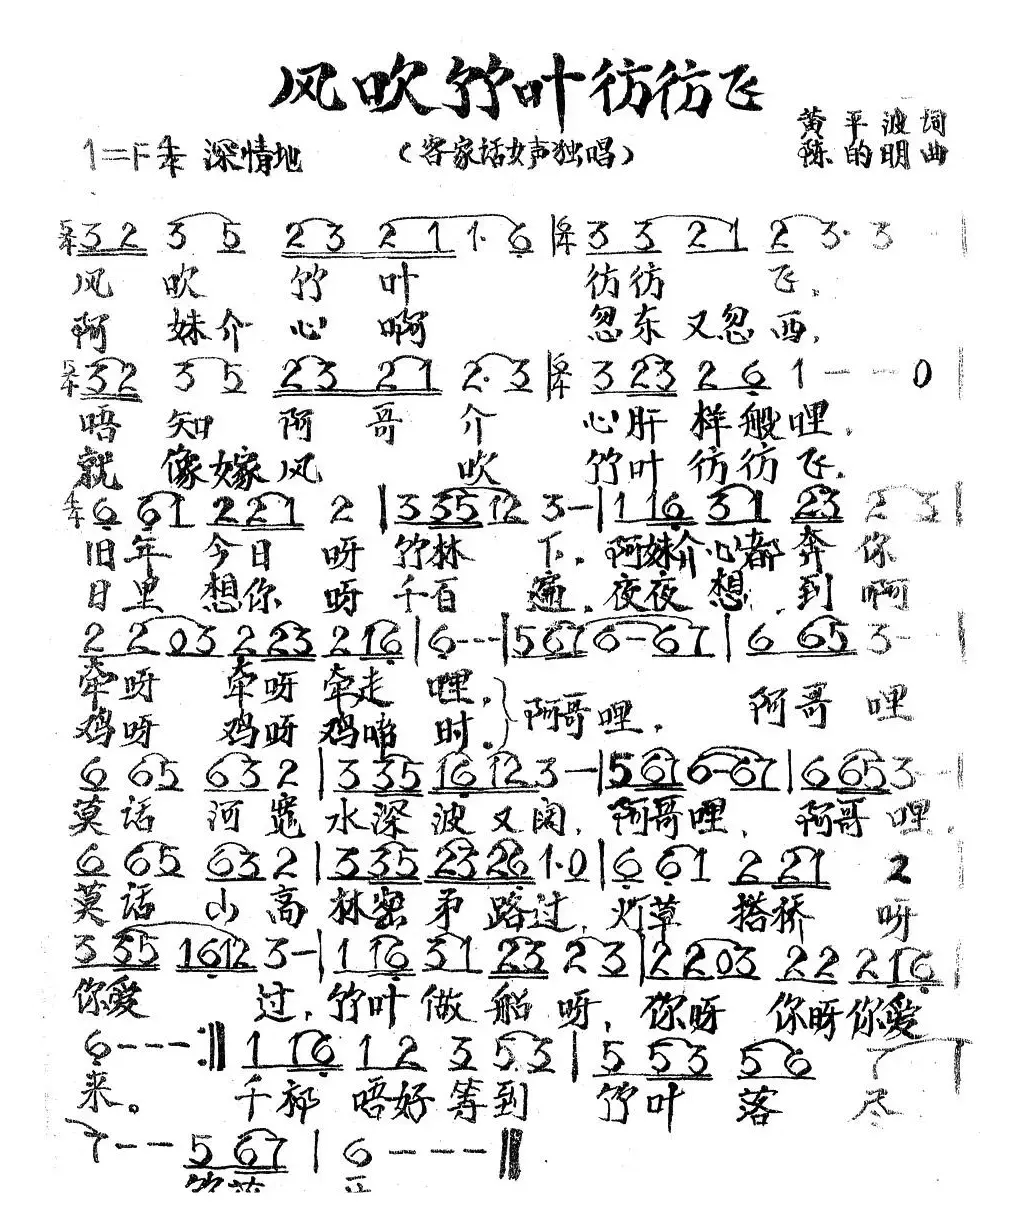 风吹竹叶彷彷飞
黄平波词
1=F 4/4 深情地 (客家话女声独唱) 陈的明曲
5/4 3 2 3 5 2 3 2 1 1· 6 | 5/4 3 3 2 1 2 3· 3 - - |
风 吹 竹 叶 彷彷 飞,
阿 妹介心啊 忽东又忽西,
5/4 3 2 3 5 2 3 2 1 2· 3 | 5/4 3 2 3 2 6 1 - - 0 |
唔 知 阿 哥 介 心肝样般哩,
就 像嫁风 吹 竹叶彷彷飞,
4/4 6 6 1 2 2 1 2 | 3 3 5 1 2 3 - | 1 1 6 3 1 2 3 2 3 |
旧年今日呀竹林下,阿妹介心都奔你
日里想你呀千百遍,夜夜想,到啊
2 2 0 3 2 2 3 2 1 6 | 6 - - - | 5 6 7 6 - 6 7 | 6 6 5 3 - - |
牵呀 牵呀牵走 哩, 阿哥哩, 阿哥哩
鸡呀 鸡呀鸡啼 时。
6 6 5 6 3 2 | 3 3 5 1 6 1 2 3 - | 5 6 7 6 - 6 7 | 6 6 5 3 - - |
莫话河宽水深波又阔,阿哥哩,阿哥哩,
6 6 5 6 3 2 | 3 3 5 2 3 2 6 1· 0 | 6 6 1 2 2 1 2
莫话山高林密弟路过,灯草搭桥呀
3 3 5 1 6 1 2 3 - | 1 1 6 3 1 2 3 2 3 | 2 2 0 3 2 2 2 1 6
你爱 过,竹叶做船呀,你呀 你呀你爱
6 - - - :‖ 1 1 6 1 2 3 5 3 | 5 5 3 5 6 7 |
来。 千祁唔好等到 竹叶落尽
7 - - 5 6 7 | 6 - - - ‖